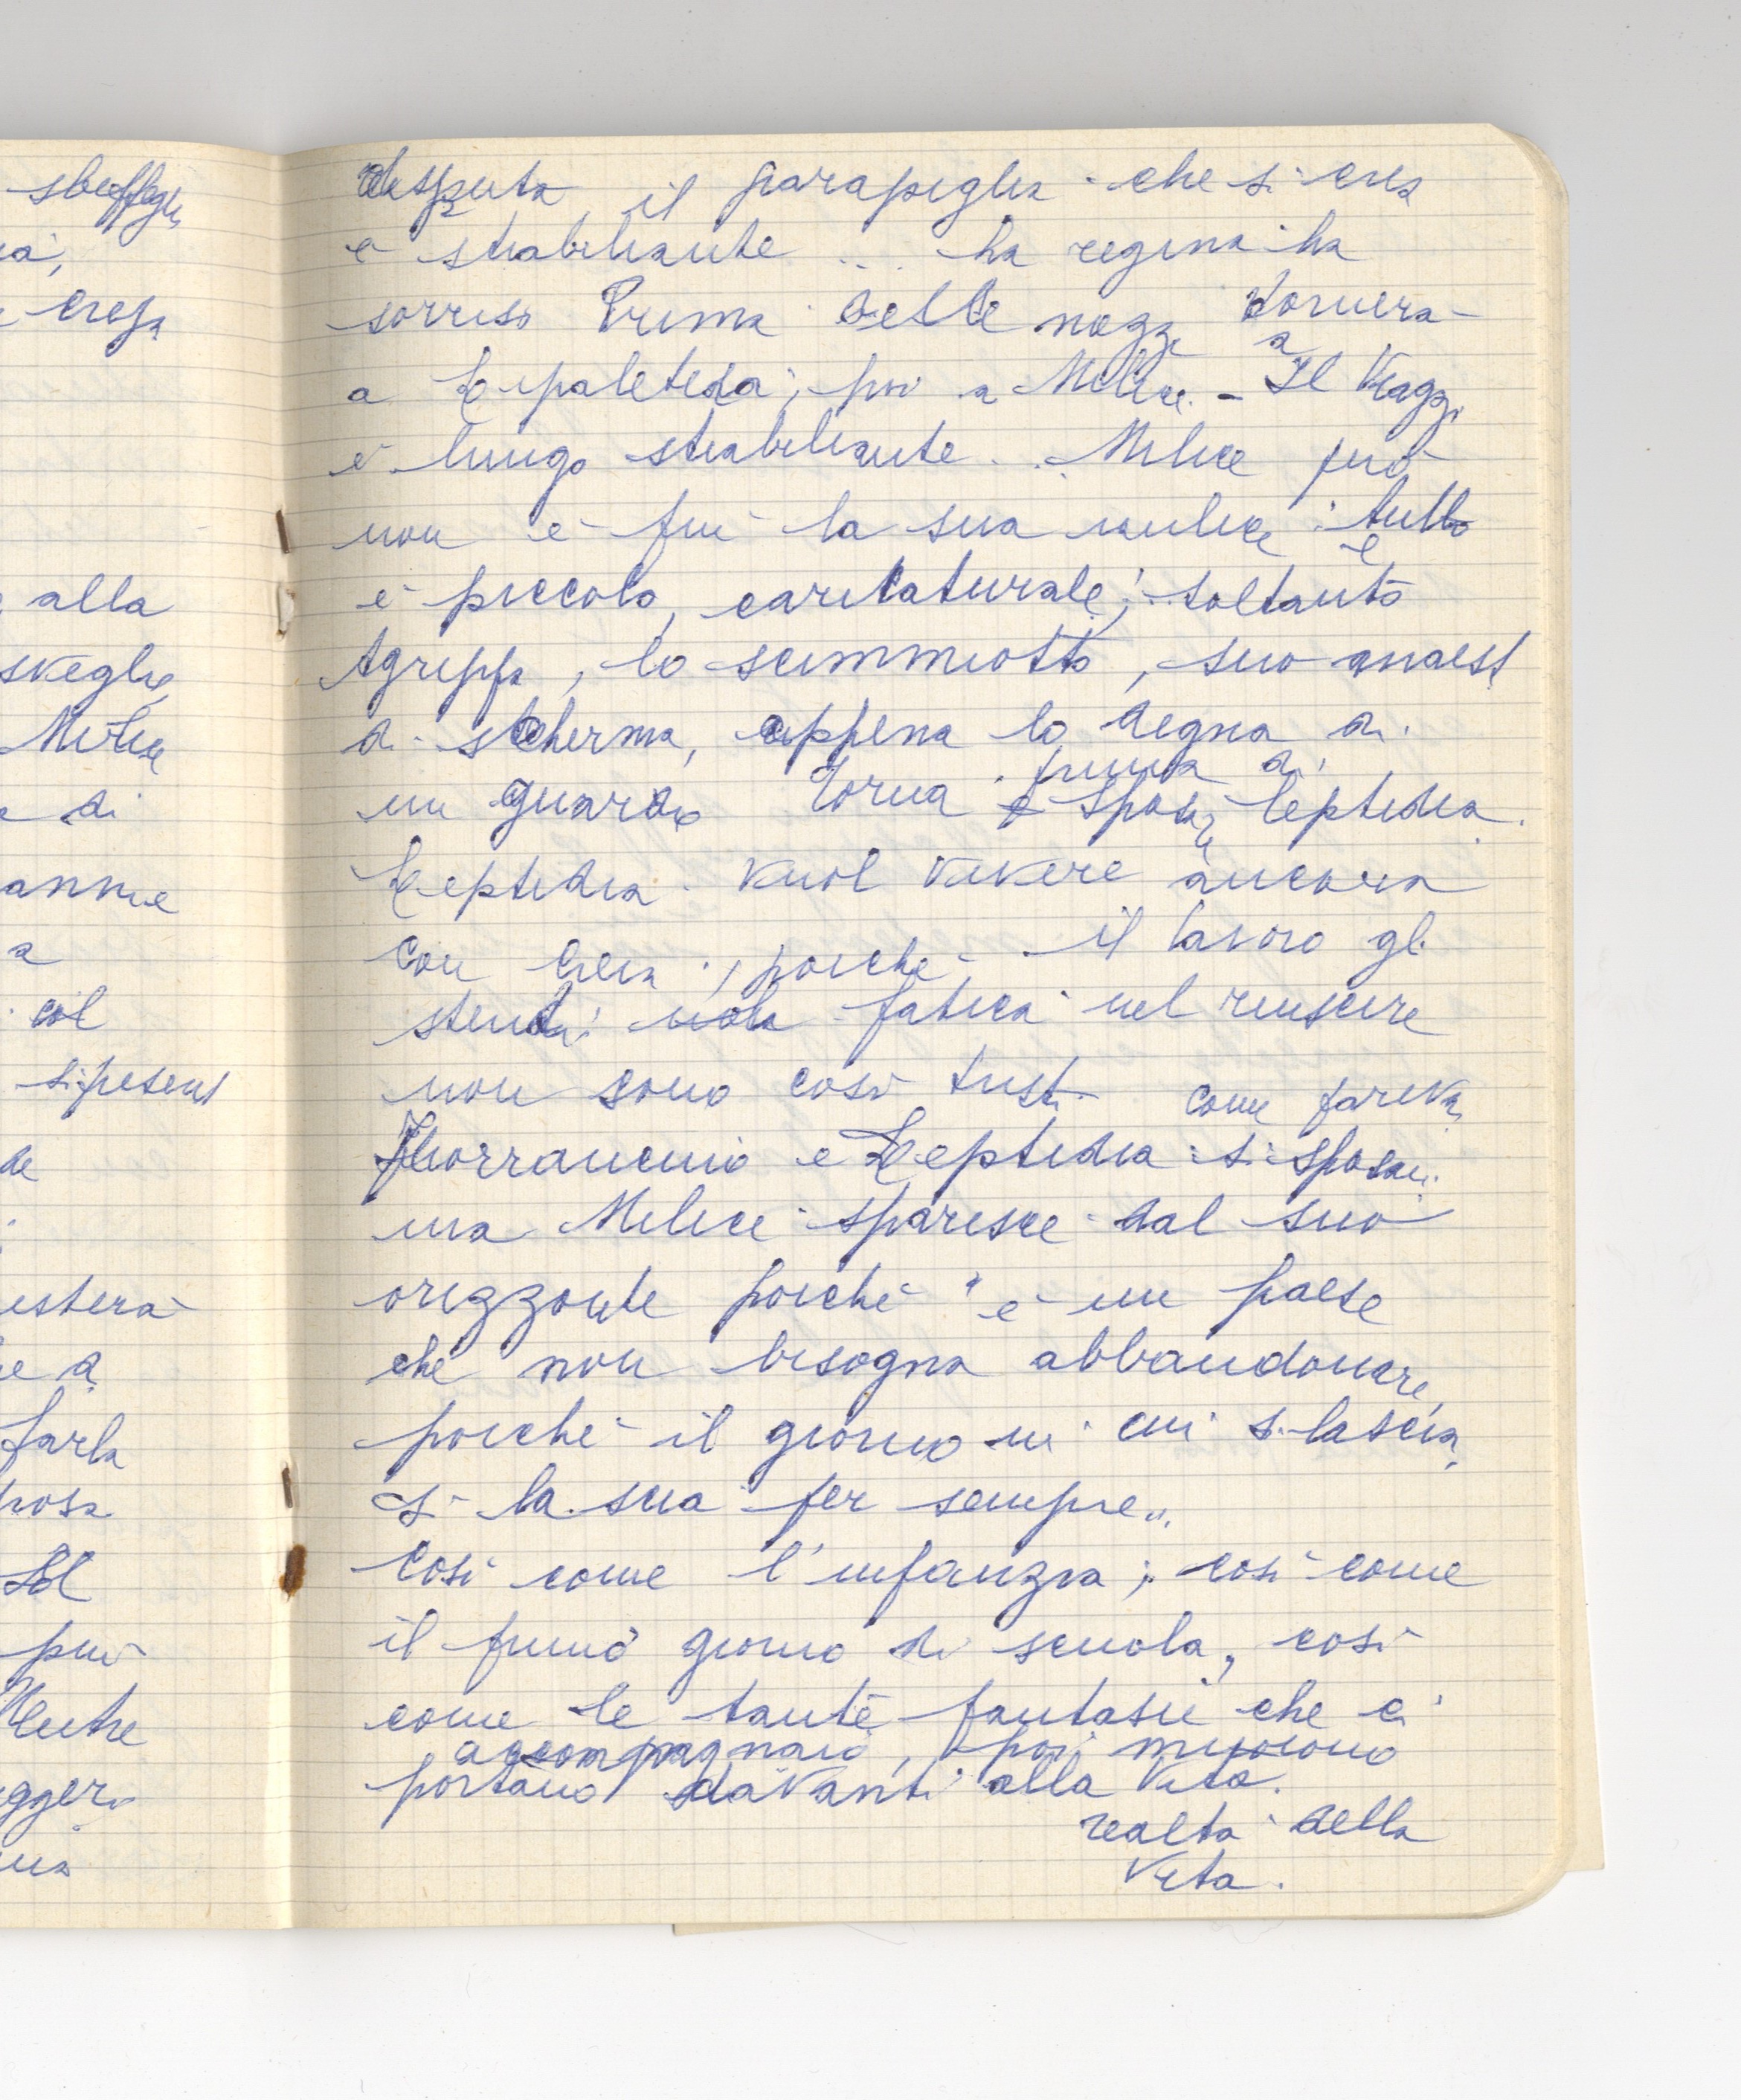 sbeffeggi
alla
sveglia
di
a
col
si present
de
farla
può
Mentre
disputa, il parapiglia che si crea
è strabiliante ... La regina ha
sorriso Prima delle nozze tornerà
a Lepatedia; poi a Milice. - Il Viaggi
è lungo strabiliante... Milice però
non è più la sua milice: tutto
è
è piccolo, caricaturale; soltanto
Agrippa, lo scimmiotto, suo maest
di scherma, appena lo degna di
un guardo Torna prima di
e sposa Leptidia.
Leptidia. Vuol vivere ancora
con lei, poiché il lavoro gli
stenti la fatica nel riuscire
non sono così tristi. come pareva
Fiorrancino e Leptidia si sposan
ma Milice sparisce dal suo
orizzonte poiché "è un paese
che non bisogna abbandonare,
poiché il giorno in cui si lascia,
si lascia per sempre".
Così come l'infanzia; così come
il primo giorno di scuola, così
come le tante fantasie che ci
accompagnano, poi muoiono
portano davanti alla vita.
realtà della
vita.